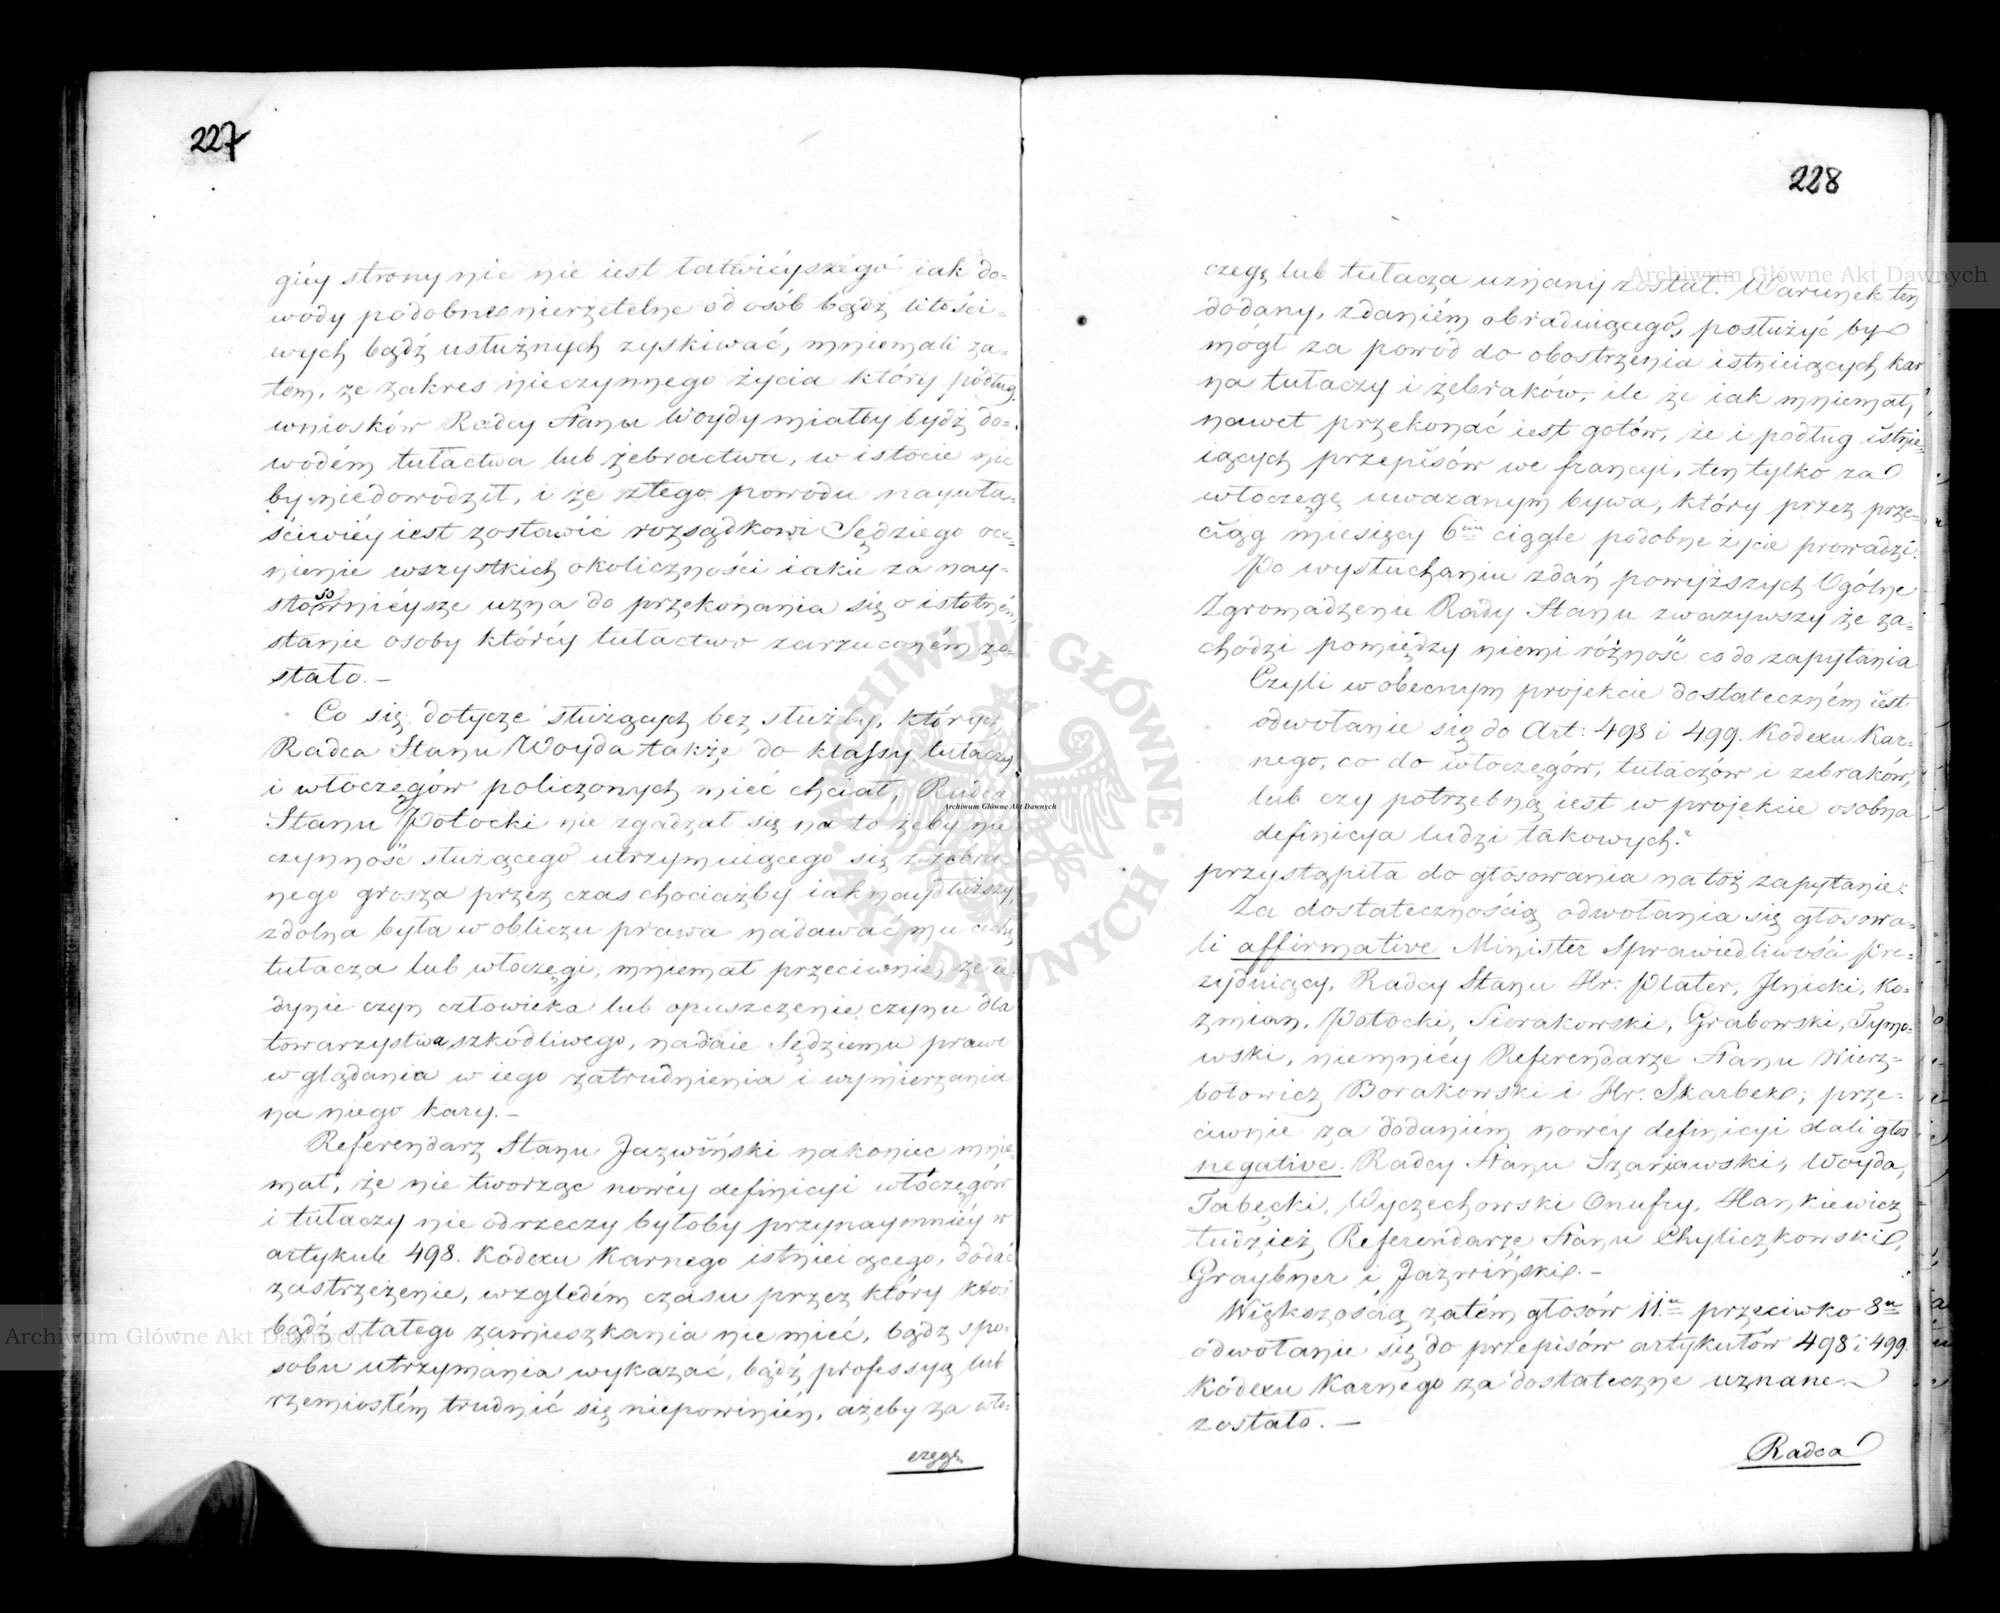 227
giéy strony nic nie iest łatwiéyszego iak do-
wody podobne nierzetelne od osób bądź litości-
wych bądź usłużnych zyskiwać, mniemali za-
tem, że zakres nieczynnego życia który podług
wniosków Radcy Stanu Woydy miałby bydź do-
wodém tułactwa lub żebractwa, w istocie nic
by niedowodził, i że z tego powodu naywła-
ściwiéy iest zostawić rozsądkowi Sędziego oce-
nienie wszystkich okoliczności iakie za nay-
stosowniéysze uzna do przekonania się o istotném
stanie osoby któréy tułactwo zarzuconém zo-
stało. —
Co się dotycze służących bez służby, których
Radca Stanu Woyda także do klassy tułaczy
i włóczęgów policzonych mieć chciał, Radca
Stanu Potocki nie zgadzał się na to żeby nie
czynność służącego utrzymuiącego się z zebra-
nego grosza przez czas chociażby iak naydłuższy,
zdolna była w obliczu prawa nadawać mu cechę
tułacza lub włoczęgi, mniemał przeciwnie, że ie-
dynie czyn człowieka lub opuszczenie czynu dla
towarzystwa szkodliwego, nadaie Sędziemu prawo
wglądania w iego zatrudnienia i wymierzania
na niego kary. —
Referendarz Stanu Jazwiński nakoniec mnie-
mał, że nie tworząc nowéy definicyi włóczęgów
i tułaczy nie odrzeczy byłoby przynaymniéy w
artykule 498. Kodexu Karnego istnieiącego, dodać
zastrzeżenie, względém czasu przez który ktoś
bądź stałego zamieszkania nie mieć, bądź spo-
sobu utrzymania wykazać, bądź professyą lub
rzemiosłém trudnić się niepowinien, ażeby za wło-
częgę
228
czegę lub tułacza uznany został. Warunek ten
dodany, zdaniém obraduiącego, posłużyć by
mógł za powód do obostrzenia istnieiących kar
na tułaczy i żebraków, ile że iak mniemał,
nawet przekonać iest gotów, że i podług istnie-
iących przepisów we francyi, ten tylko za
włoczęgę uważanym bywa, który przez prze-
ciąg miesięcy 6ciu ciągle podobne życie prowadzi.
Po wysłuchaniu zdań powyższych Ogólne
Zgromadzenie Rady Stanu zważywszy że za-
chodzi pomiędzy niemi różność co do zapytania
Czyli w obecnym projekcie dostateczném iest
odwołanie się do Art: 498 i 499. Kodexu Kar-
nego, co do włoczęgów, tułaczów i żebraków,
lub czy potrzebną iest w projekcie osobna
definicya ludzi takowych?
przystąpiła do głosowania na toż zapytanie:
Za dostatecznością odwołania się głosowa-
li affirmative Minister Sprawiedliwości Pre-
zyduiący, Radcy Stanu Hr: Plater, Jlnicki, Ko-
źmian, Potocki, Sierakowski, Grabowski, Tymo-
wski, niemniéy Referendarze Stanu Wierz-
bołowicz Borakowski i Hr. Skarbek; prze-
ciwnie za dodaniém nowéy definicyi dali głos
negative. Radcy Stanu Szaniawski, Woyda,
Tabęcki, Wyczechowski Onufry, Hankiewicz
tudzież Referendarze Stanu Chyliczkowski,
Graybner i Jazwiński. —
Większością zatém głosów 11.u przeciwko 8u
odwołanie się do przepisów artykułów 498 i 499.
Kodexu Karnego za dostateczne uznane
zostało. —
Radca
Archiwum Główne Akt Dawnych
Archiwum Główne Akt Dawnych
Archiwum Główne Akt Dawnych
ARCHIWUM GŁÓWNE AKT DAWNYCH